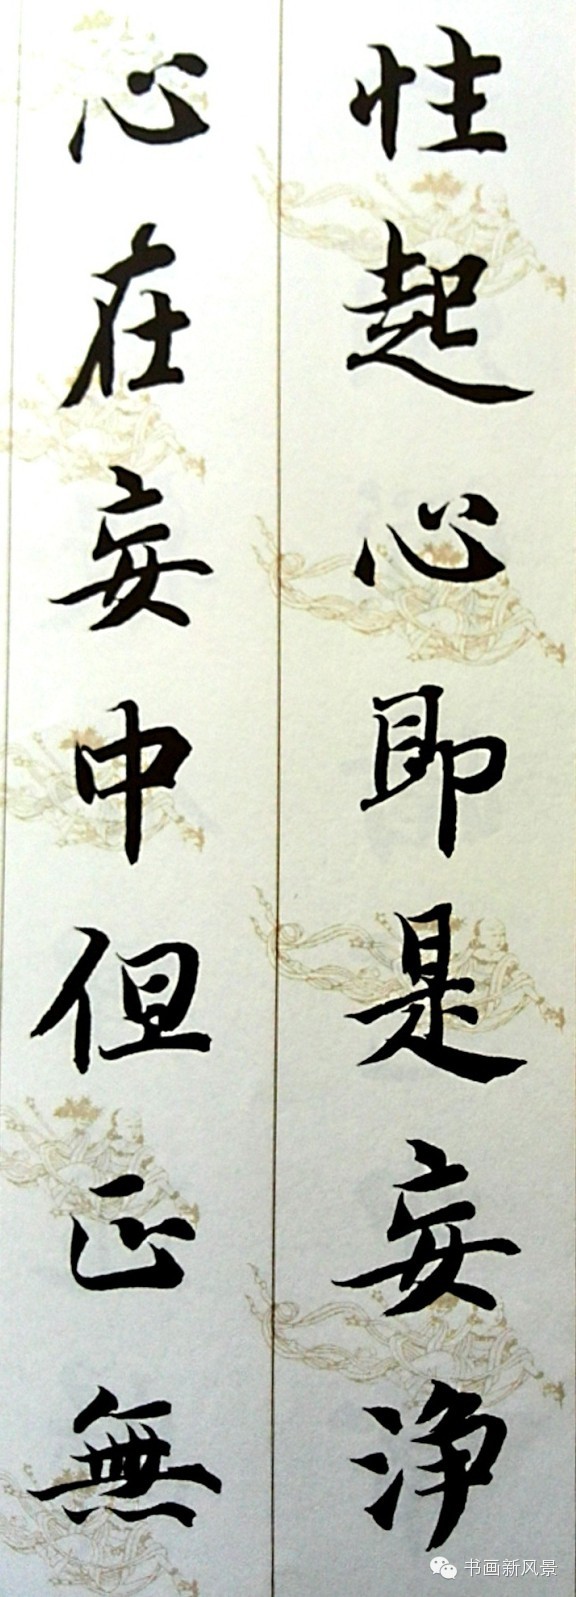 性起心即是妄净
心在妄中但正無
书画新风景